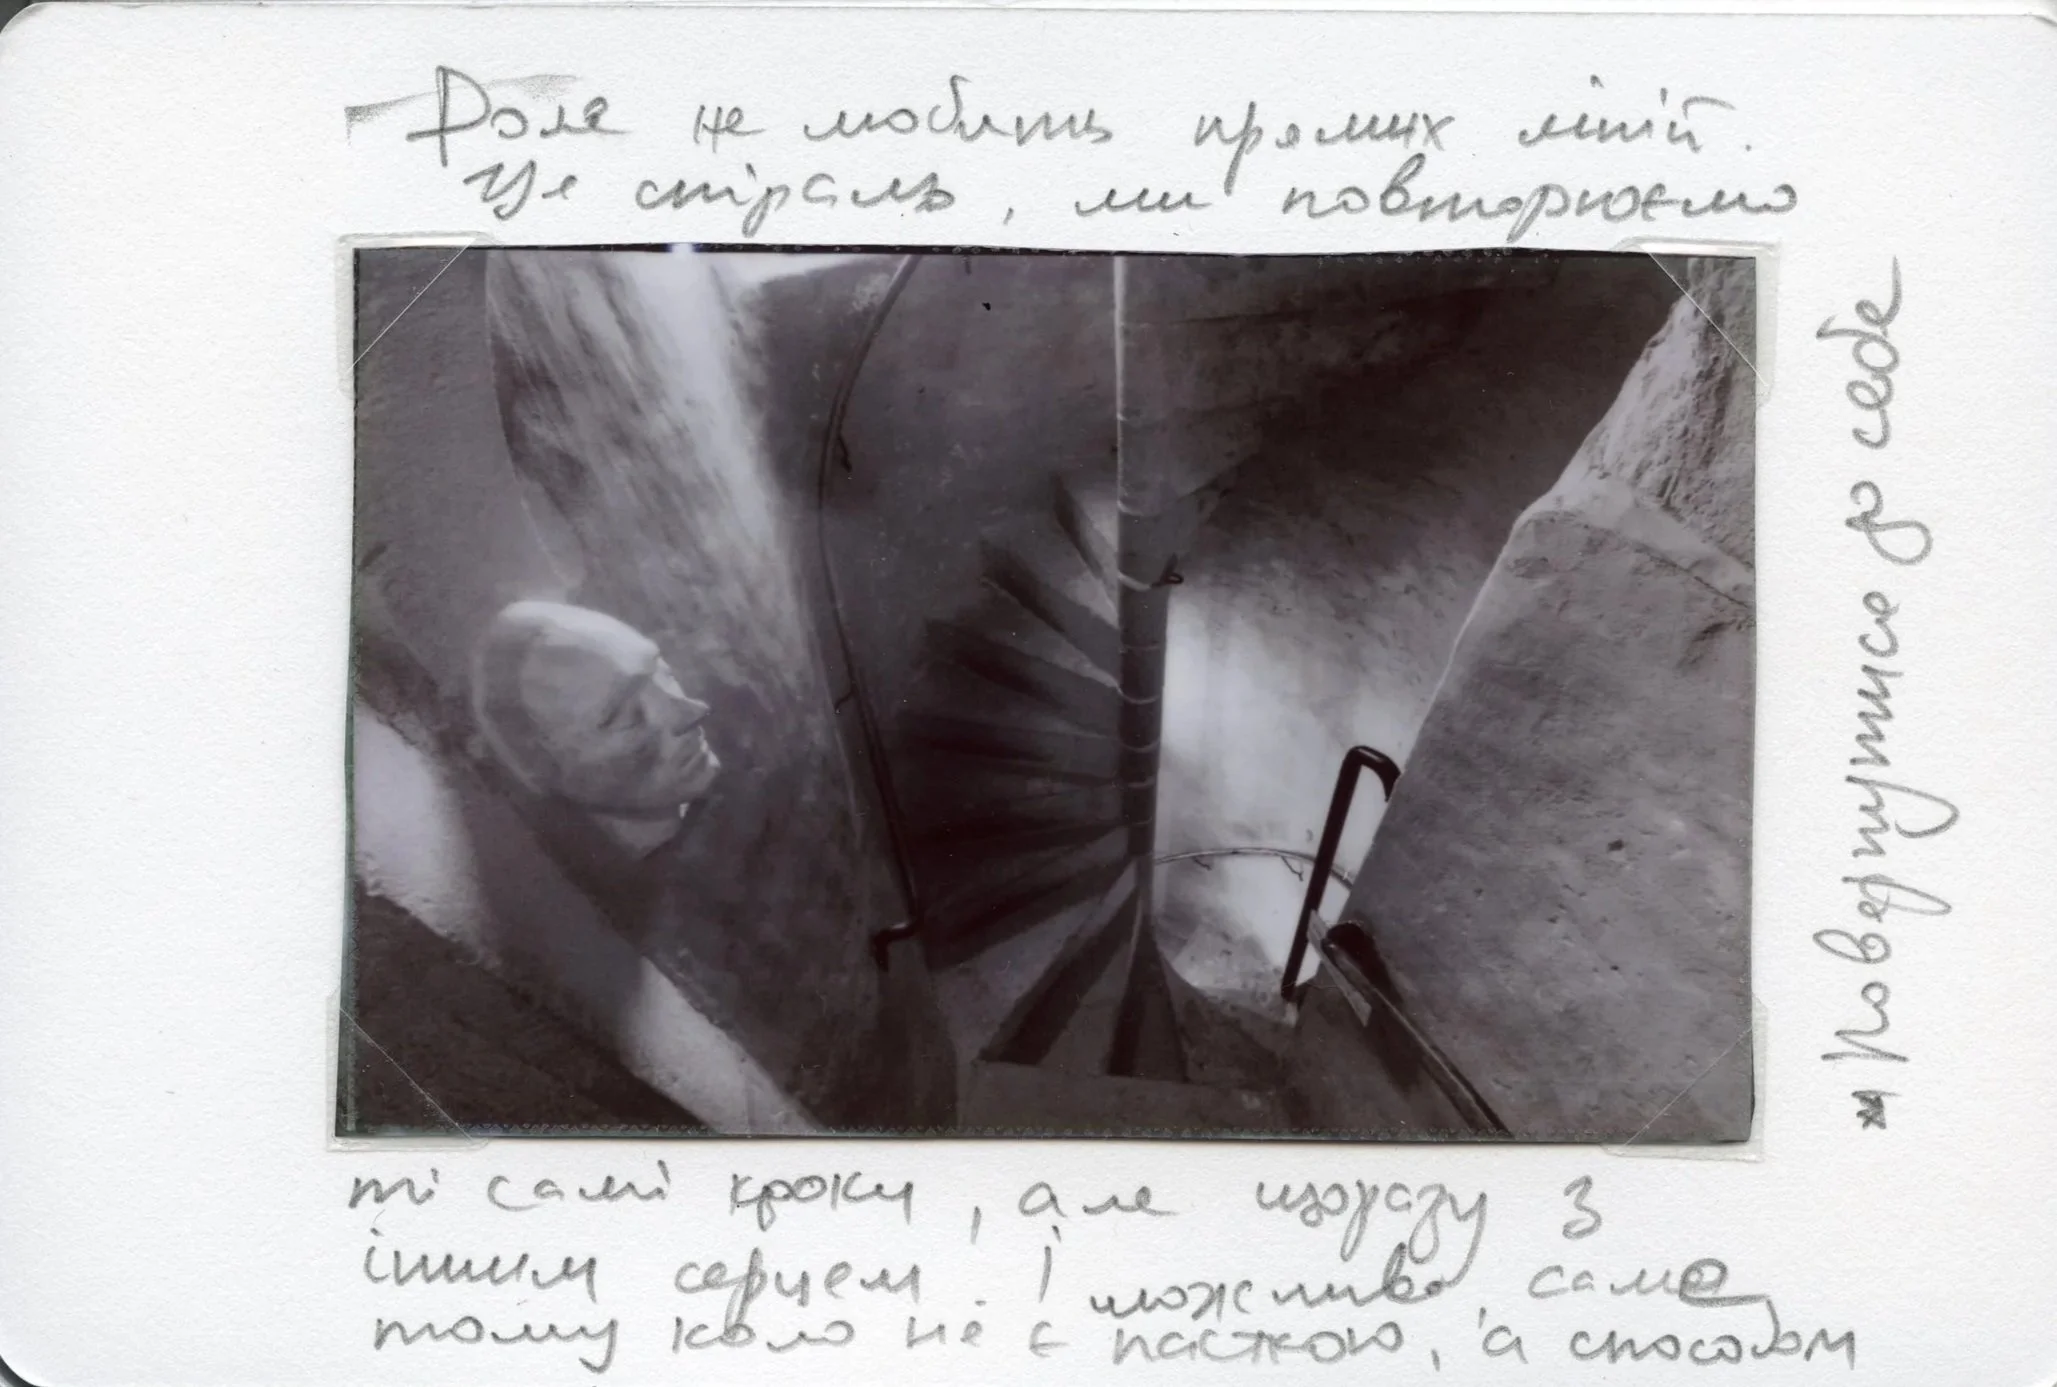 Доля не любить прямих ліній.
Це спіраль, ми повторюємо
ті самі кроки, але щоразу з
іншим серцем. І можливо, саме
тому коло не є пасткою, а способом
* повернутися до себе